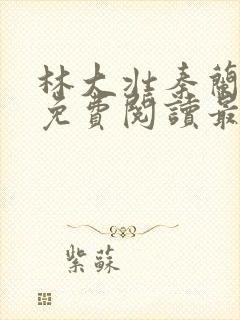 林大壯秦蘭
免費閱讀最
紫蘇